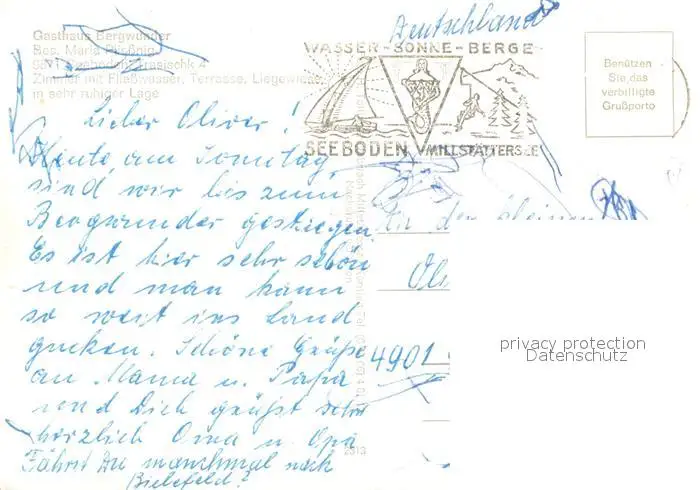 Deutschland
Gasthaus Bergwunder
Bes. Maria
9871 Seeboden 4
Zimmer mit Fließwasser, Terrasse, Liegewiese,
in sehr ruhiger Lage
WASSER-SONNE-BERGE
SEEBODEN MILLSTÄTTERSEE
Benützen
Sie das
verbilligte
Grußporto
Lieber Oliver!
Heute, am Sonntag,
sind wir bis zum
Bergwunder gestiegen.
Es ist hier sehr schön
und man kann
so weit ins Land
gucken. Schöne Grüße
an Mama u. Papa
und Dich grüßt sehr
herzlich Oma u. Opa
Fährst Du manchmal nach
Bielefeld?
An den kleinen
Oli
4901
privacy protection
Datenschutz